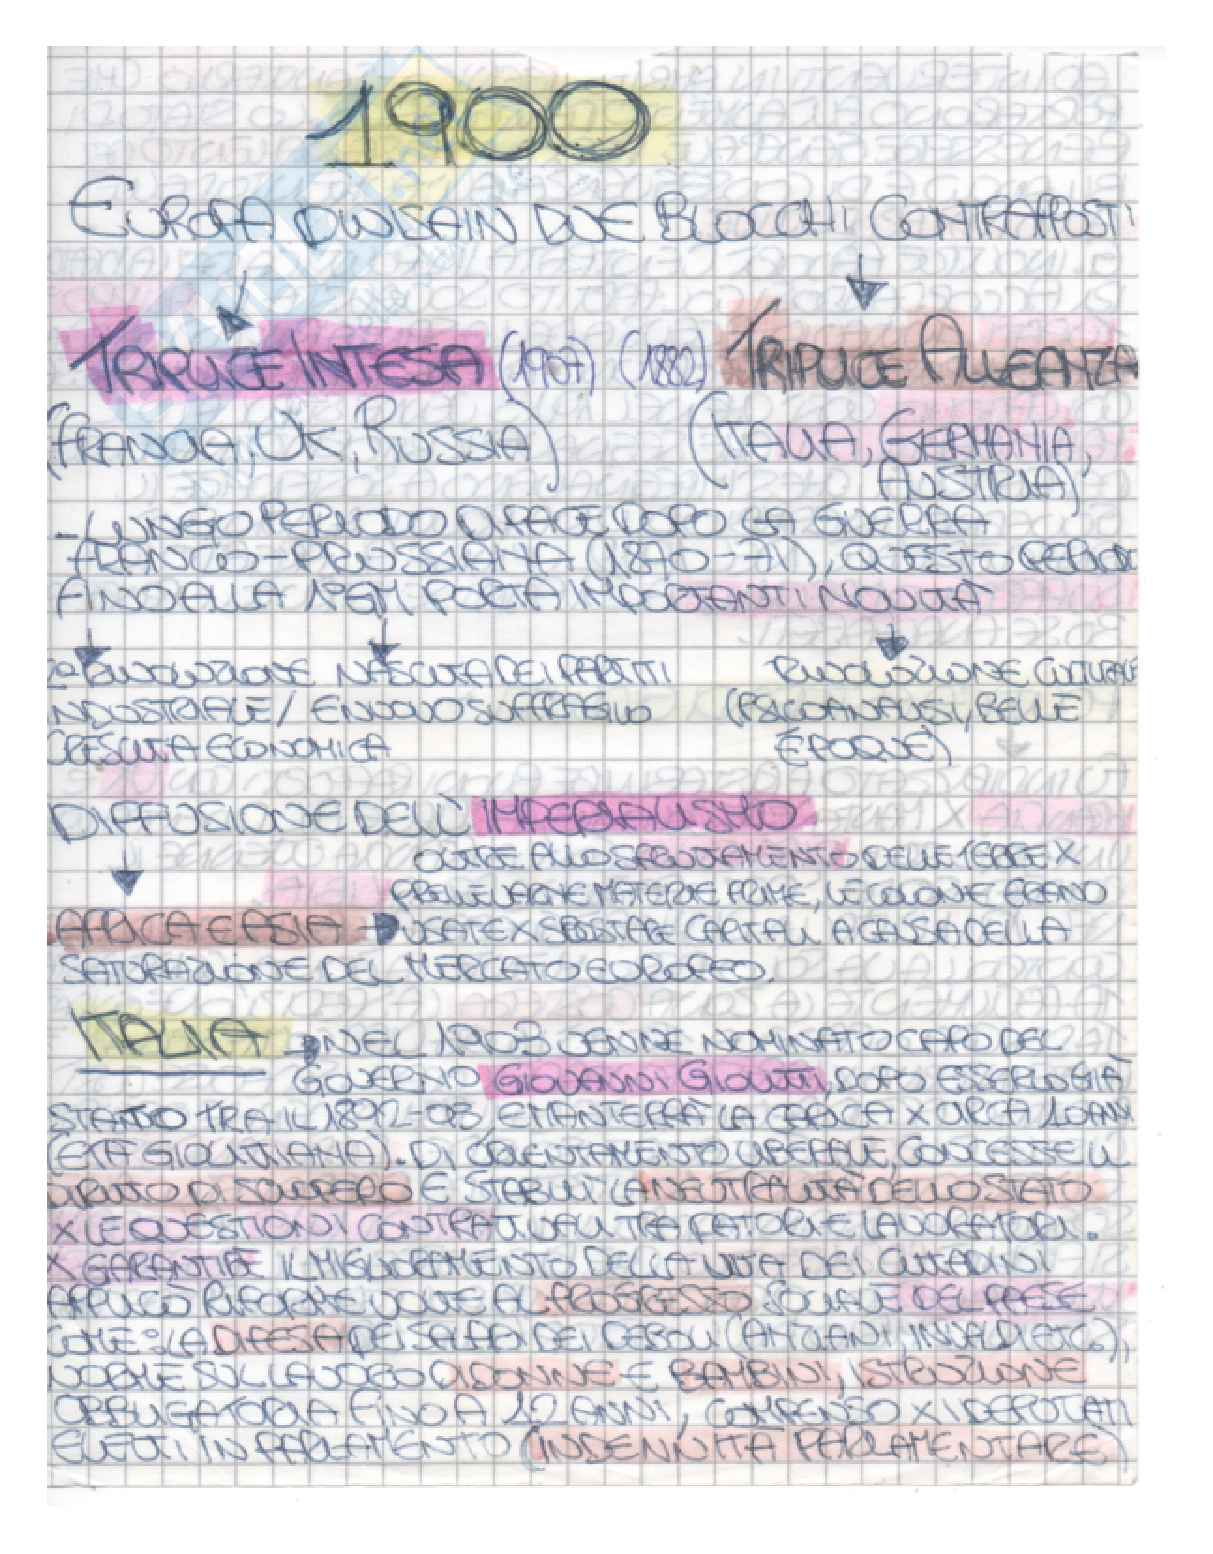 1900
EUROPA DIVISA IN DUE BLOCCHI CONTRAPPOSTI
TRIPLICE INTESA (1907) (1882) TRIPLICE ALLEANZA
(FRANCIA, UK, RUSSIA) (ITALIA, GERMANIA,
AUSTRIA)
- LUNGO PERIODO DI PACE DOPO LA GUERRA
FRANCO-PRUSSIANA (1870-71), QUESTO PERIODO
FINO ALLA 1ªGM PORTA IMPORTANTI NOVITÀ
2ª RIVOLUZIONE NASCITA DEI PARTITI RIVOLUZIONE CULTURALE
INDUSTRIALE/ E NUOVO SUFFRAGIO (PSICOANALISI, BELLE
CRESCITA ECONOMICA ÉPOQUE)
DIFFUSIONE DELL' IMPERIALISMO
OLTRE ALLO SFRUTTAMENTO DELLE TERRE X
PRELEVARNE MATERIE PRIME, LE COLONIE ERANO
AFRICA E ASIA → USATE X SPOSTARE CAPITALI A CAUSA DELLA
SATURAZIONE DEL MERCATO EUROPEO.
ITALIA → NEL 1903 VENNE NOMINATO CAPO DEL
GOVERNO GIOVANNI GIOLITTI, DOPO ESSERLO GIÀ
STATO TRA IL 1892-93 E MANTERRÀ LA CARICA X CIRCA 10 ANNI
(ETÀ GIOLITTIANA). DI ORIENTAMENTO LIBERALE, CONCESSE IL
DIRITTO DI SCIOPERO E STABILÌ LA NEUTRALITÀ DELLO STATO
X LE QUESTIONI CONTRATTUALI TRA DATORI E LAVORATORI.
X GARANTIRE IL MIGLIORAMENTO DELLA VITA DEI CITTADINI
APPLICÒ RIFORME VOLTE AL PROGRESSO SOCIALE DEL PAESE
COME: LA DIFESA DEI SALARI DEI DEBOLI (ANZIANI, INVALIDI ETC.),
NORME SUL LAVORO DI DONNE E BAMBINI, ISTRUZIONE
OBBLIGATORIA FINO A 12 ANNI, COMPENSO X I DEPUTATI
ELETTI IN PARLAMENTO (INDENNITÀ PARLAMENTARE)